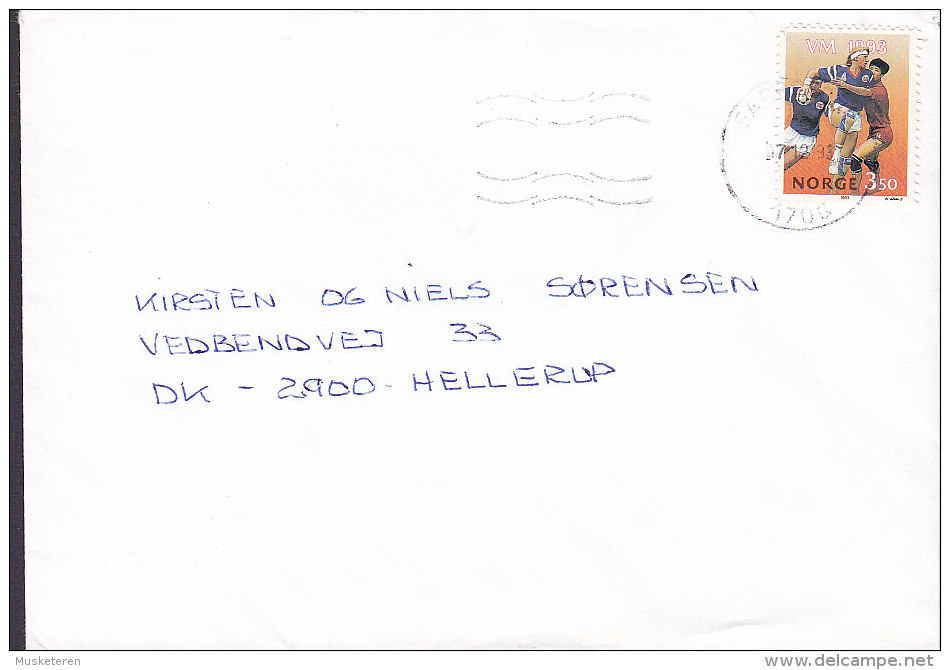 VM 1993
NORGE 350
1706
KIRSTEN OG NIELS SØRENSEN
VEDBENDVEJ 33
DK - 2900 - HELLERUP
Musketeren
delcampe.net